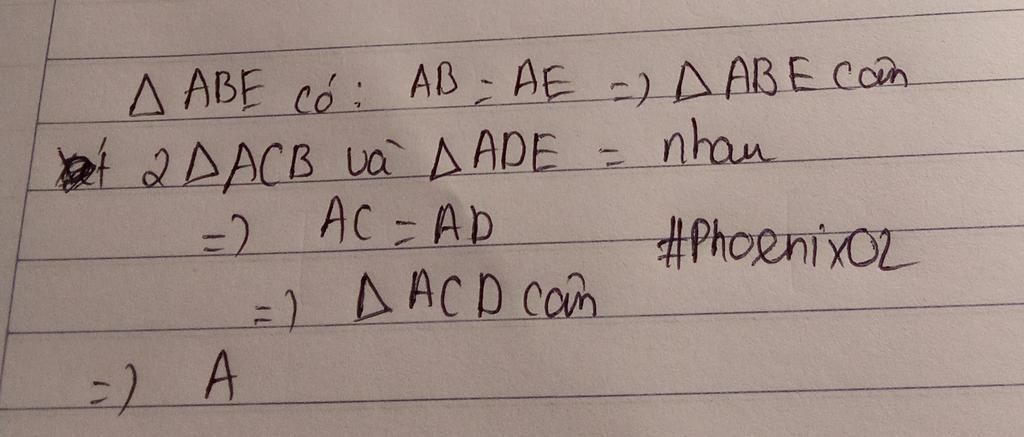 Δ ABE có: AB = AE => Δ ABE cân
2 Δ ACB và Δ ADE = nhau
=> AC = AD
#Phoenix02
=> Δ ACD cân
=> A